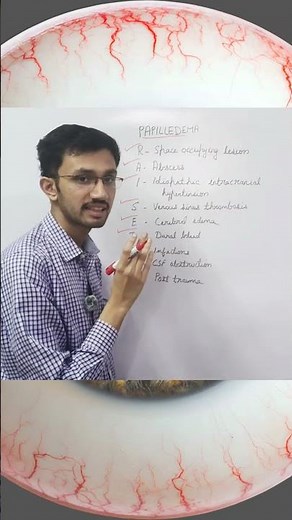 PAPILLEDEMA
R - Space occupying lesson
A - Abscess
I - Idiopathic intracranial
hypertension
S - Venous sinus thrombosis
E - Cerebral edema
Dural bleed
Infections
CSF obstruction
Post trauma